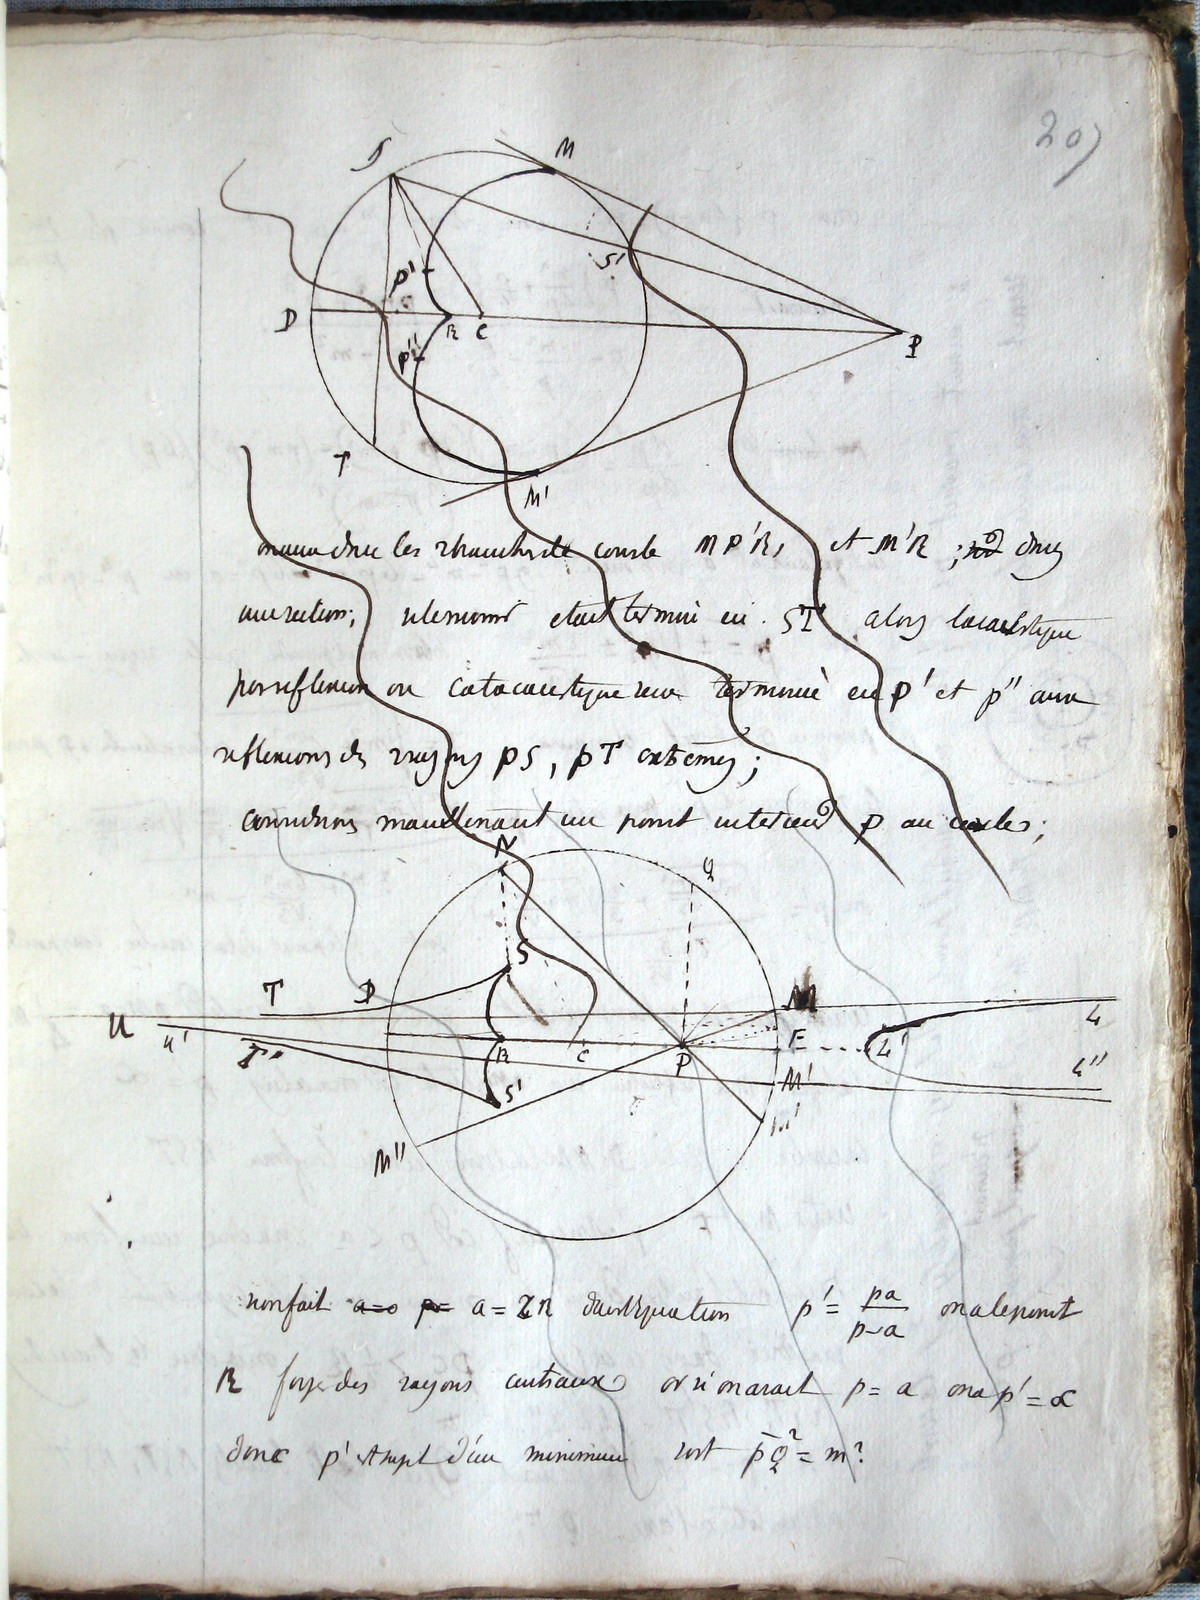 207
S M
P' S'
D R C P
P''
T
M'
on aura donc les branches de courbe MP'R, et M'R ; donc
une section; si le miroir etait terminé en ST alors la caustique
par reflexion ou catacaustique sera terminé en P' et P'' aux
reflexions des rayons PS, PT extêmes;
considerons maintenant un point interieur P au cercle;
N Q
S
T D M
U u' R C P F L' L
T' S' M' L''
M''
si on fait a=o p= a=2R dans l'equation p' = pa/p-a on a le point
R foyer des rayons centraux or si on avait p = a on a p' = ∝
donc p' est d'un minimum soit PQ² = m²